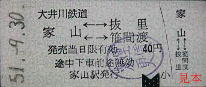 51.-9.30.
大井川鉄道
家山 ←→ 抜里
←→ 笹間渡
発売当日限有効 40円
途中下車前途無効
家山駅発行
小
家山
見本